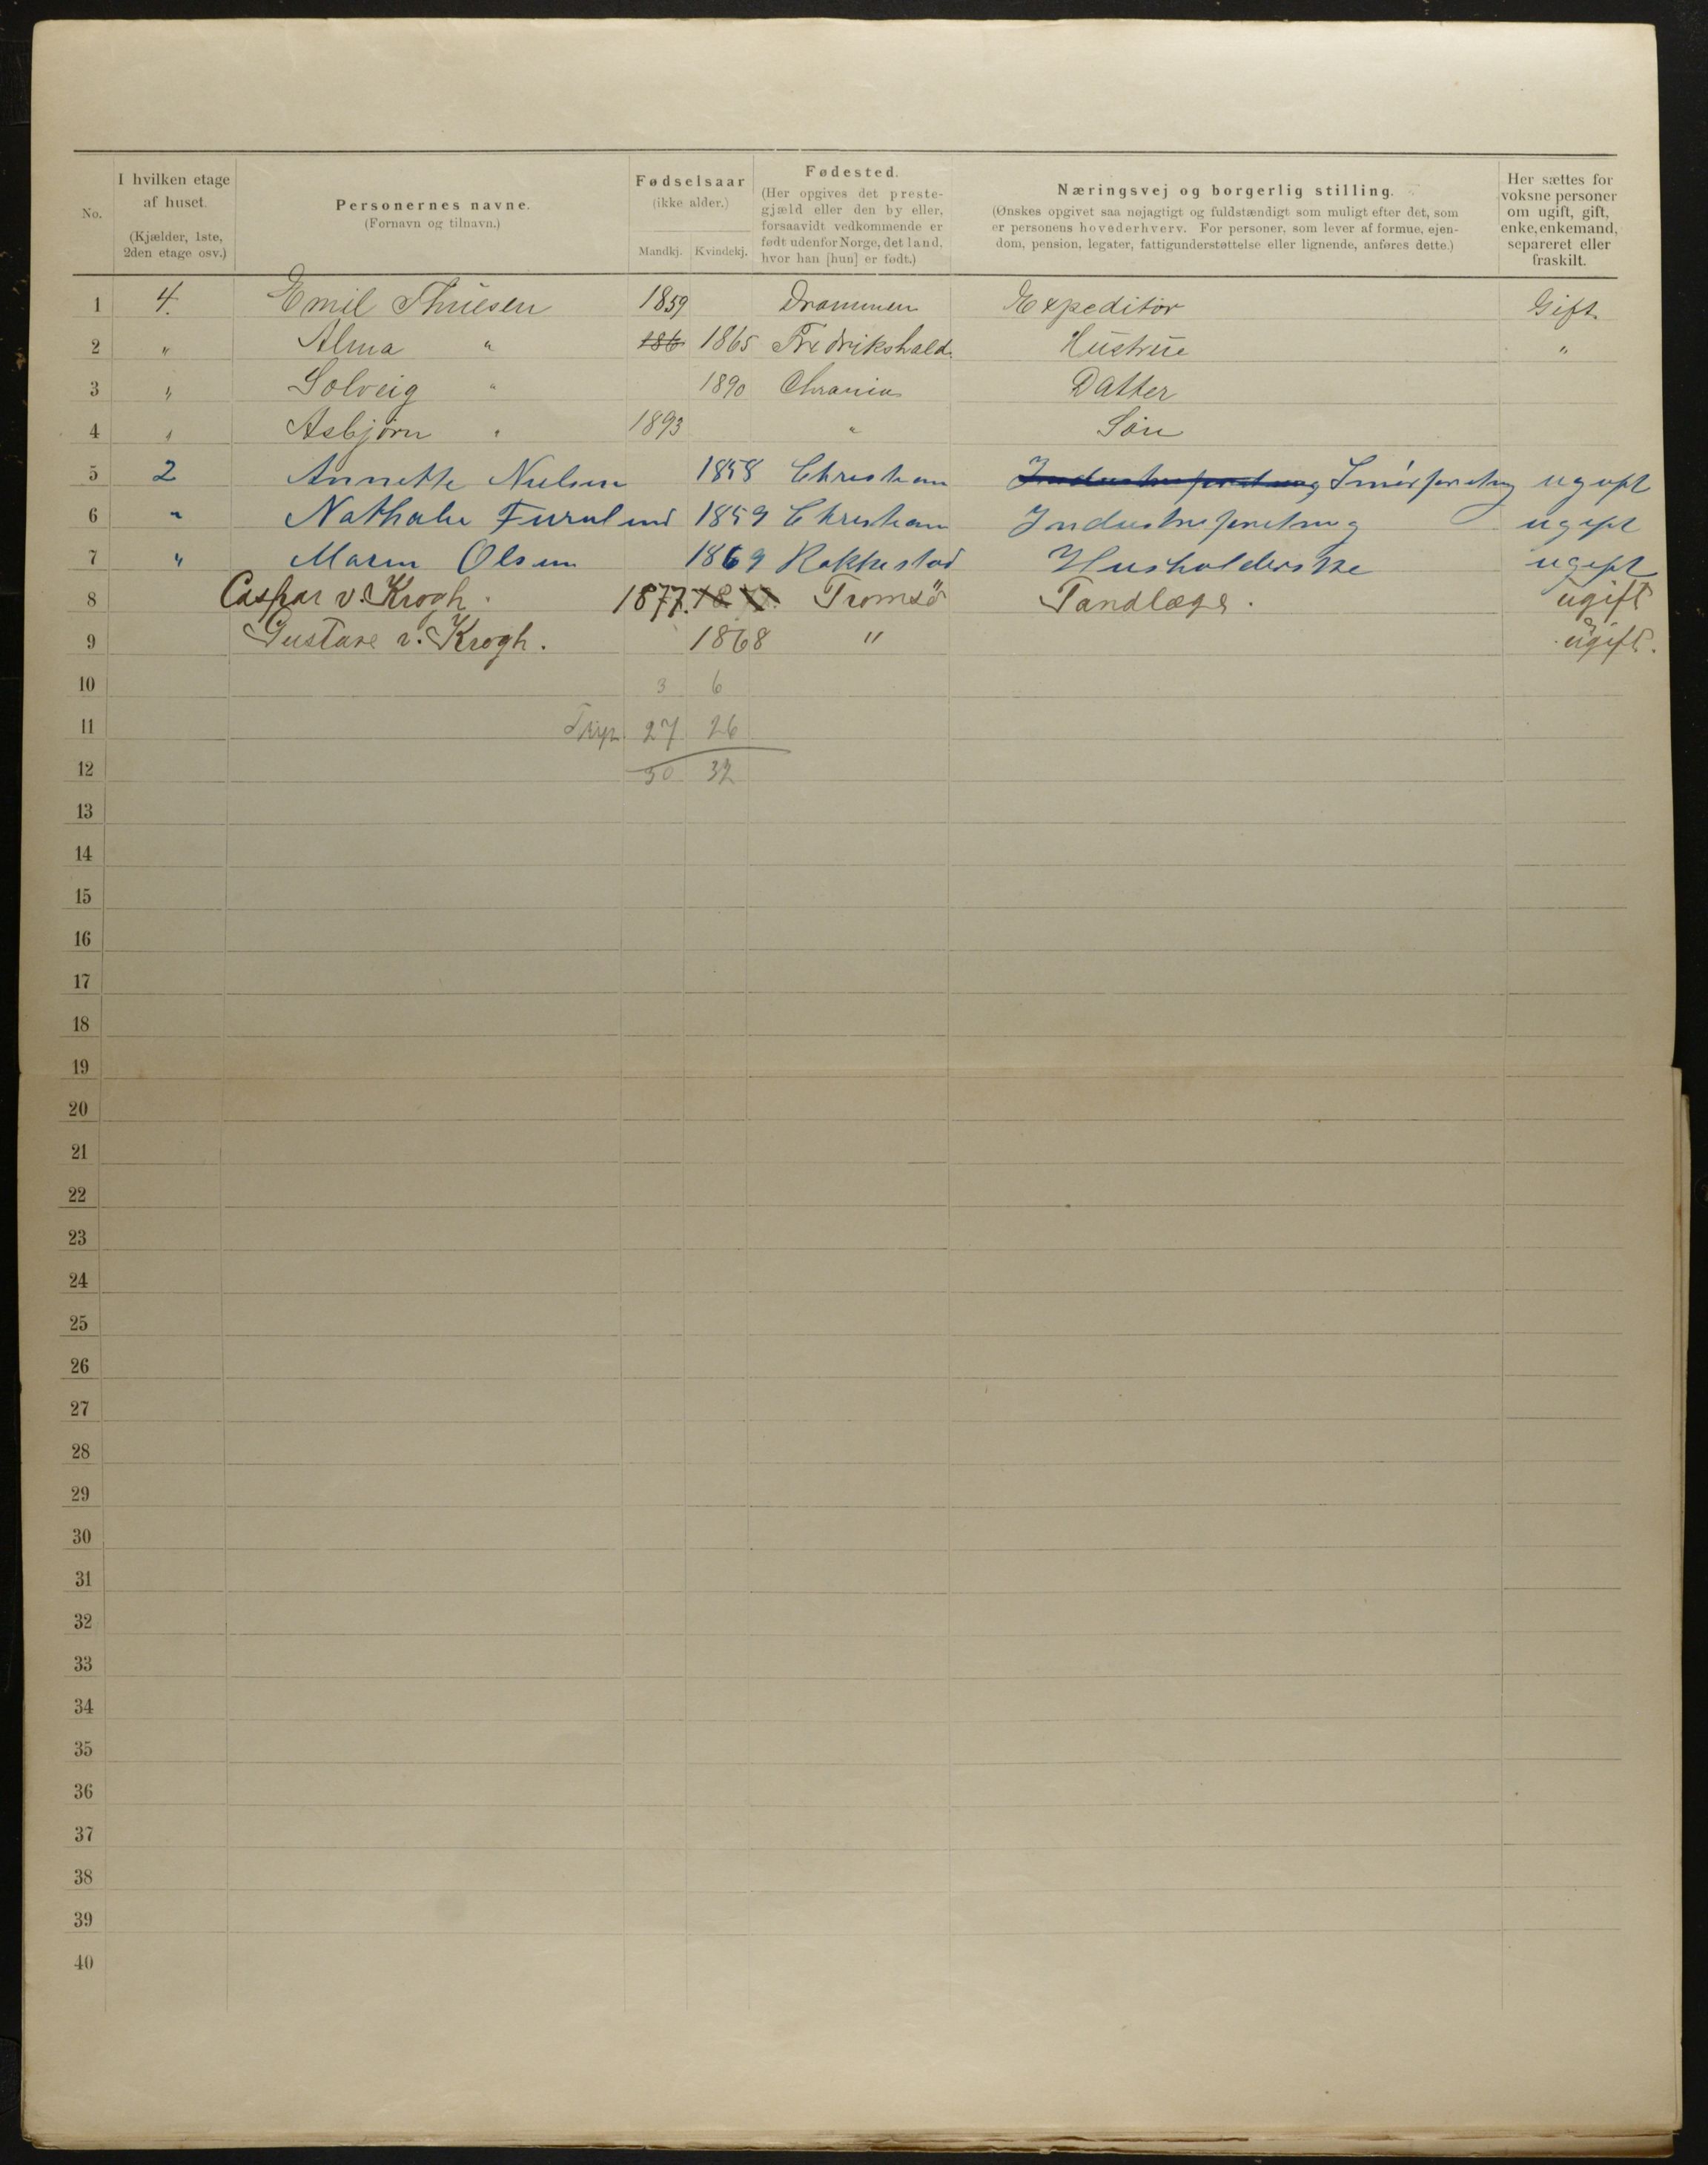 No.
I hvilken etage af huset.
(Kjælder, 1ste, 2den etage osv.)
Personernes navne.
(Fornavn og tilnavn.)
Fødselsaar
(ikke alder.)
Mandkj. Kvindekj.
Fødested.
(Her opgives det prestegjæld eller den by eller, forsaavidt vedkommende er født udenfor Norge, det land, hvor han [hun] er født.)
Næringsvej og borgerlig stilling.
(Ønskes opgivet saa nøjagtigt og fuldstændigt som muligt efter det, som er personens hovederhverv. For personer, som lever af formue, ejendom, pension, legater, fattigunderstøttelse eller lignende, anføres dette.)
Her sættes for voksne personer om ugift, gift, enke, enkemand, separeret eller fraskilt.
1 4. Emil Thuesen 1859 Drammen Expeditör Gift.
2 " Alma " 186 1865 Fredrikshald. Hustrue "
3 " Solveig " 1890 Chrania Datter
4 " Asbjörn " 1893 " Sön
5 2 Annette Nielsen 1858 Christiania Industriforretning Smörforretng ugift
6 " Nathalie Furulund 1859 Christiania Industriforretning ugift
7 " Maren Olsen 1869 Rakkestad Husholderske ugift
8 Caspar v. Krogh. 1877. 18 Tromsö Tandlæge. ugift
9 Gustave v. Krogh. 1868 " ugift.
10 3 6
11 27 26
12 30 32
13
14
15
16
17
18
19
20
21
22
23
24
25
26
27
28
29
30
31
32
33
34
35
36
37
38
39
40